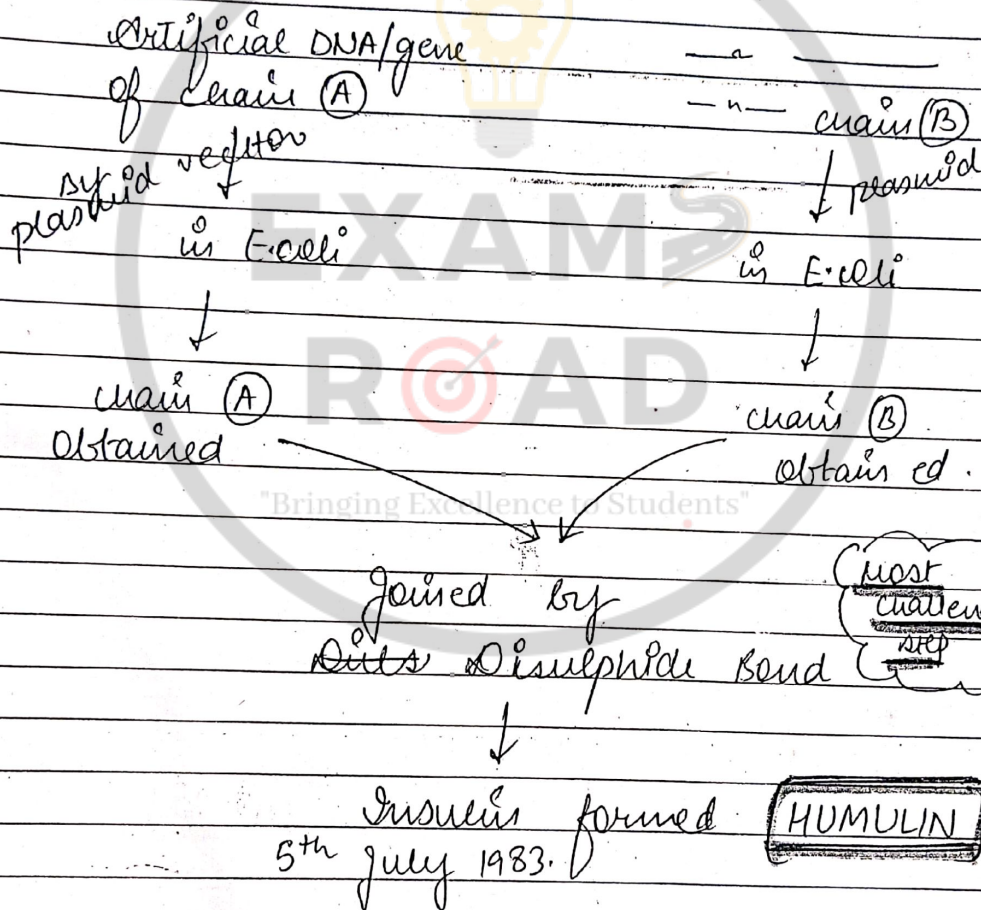 Artificial DNA/gene
of chain Ⓐ
—"— chain Ⓑ
by plasmid vector
plasmid
in E.coli
in E.coli
chain Ⓐ
obtained
chain Ⓑ
obtained.
EXAM
ROAD
"Bringing Excellence to Students"
Joined by
Disulphide Bond
Most
challen
step
Insulin formed
5th July 1983.
HUMULIN